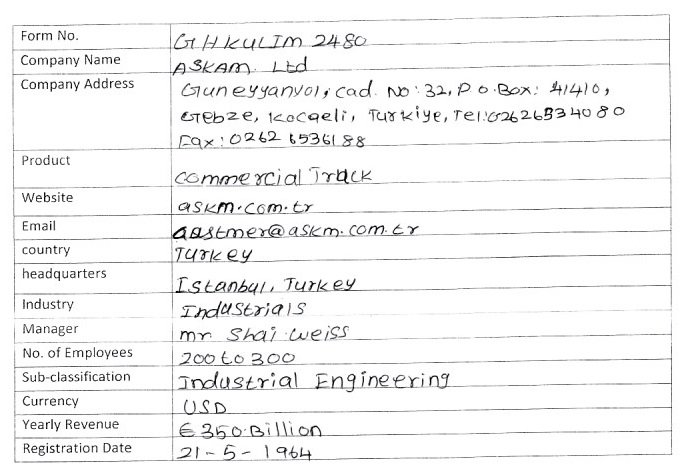 Form No. GHKULIM 2480
Company Name ASKAM Ltd
Company Address Guneyyanyol, cad. No: 32, P.O.Box: 41410,
Gebze, Kocaeli, Turkiye, Tel:02626534080
Fax: 0262 6536188
Product Commercial Truck
Website askm.com.tr
Email aastmer@askm.com.tr
country Turkey
headquarters Istanbul, Turkey
Industry Industrials
Manager mr. Shai weiss
No. of Employees 200 to 300
Sub-classification Industrial Engineering
Currency USD
Yearly Revenue €350.Billion
Registration Date 21-5-1964